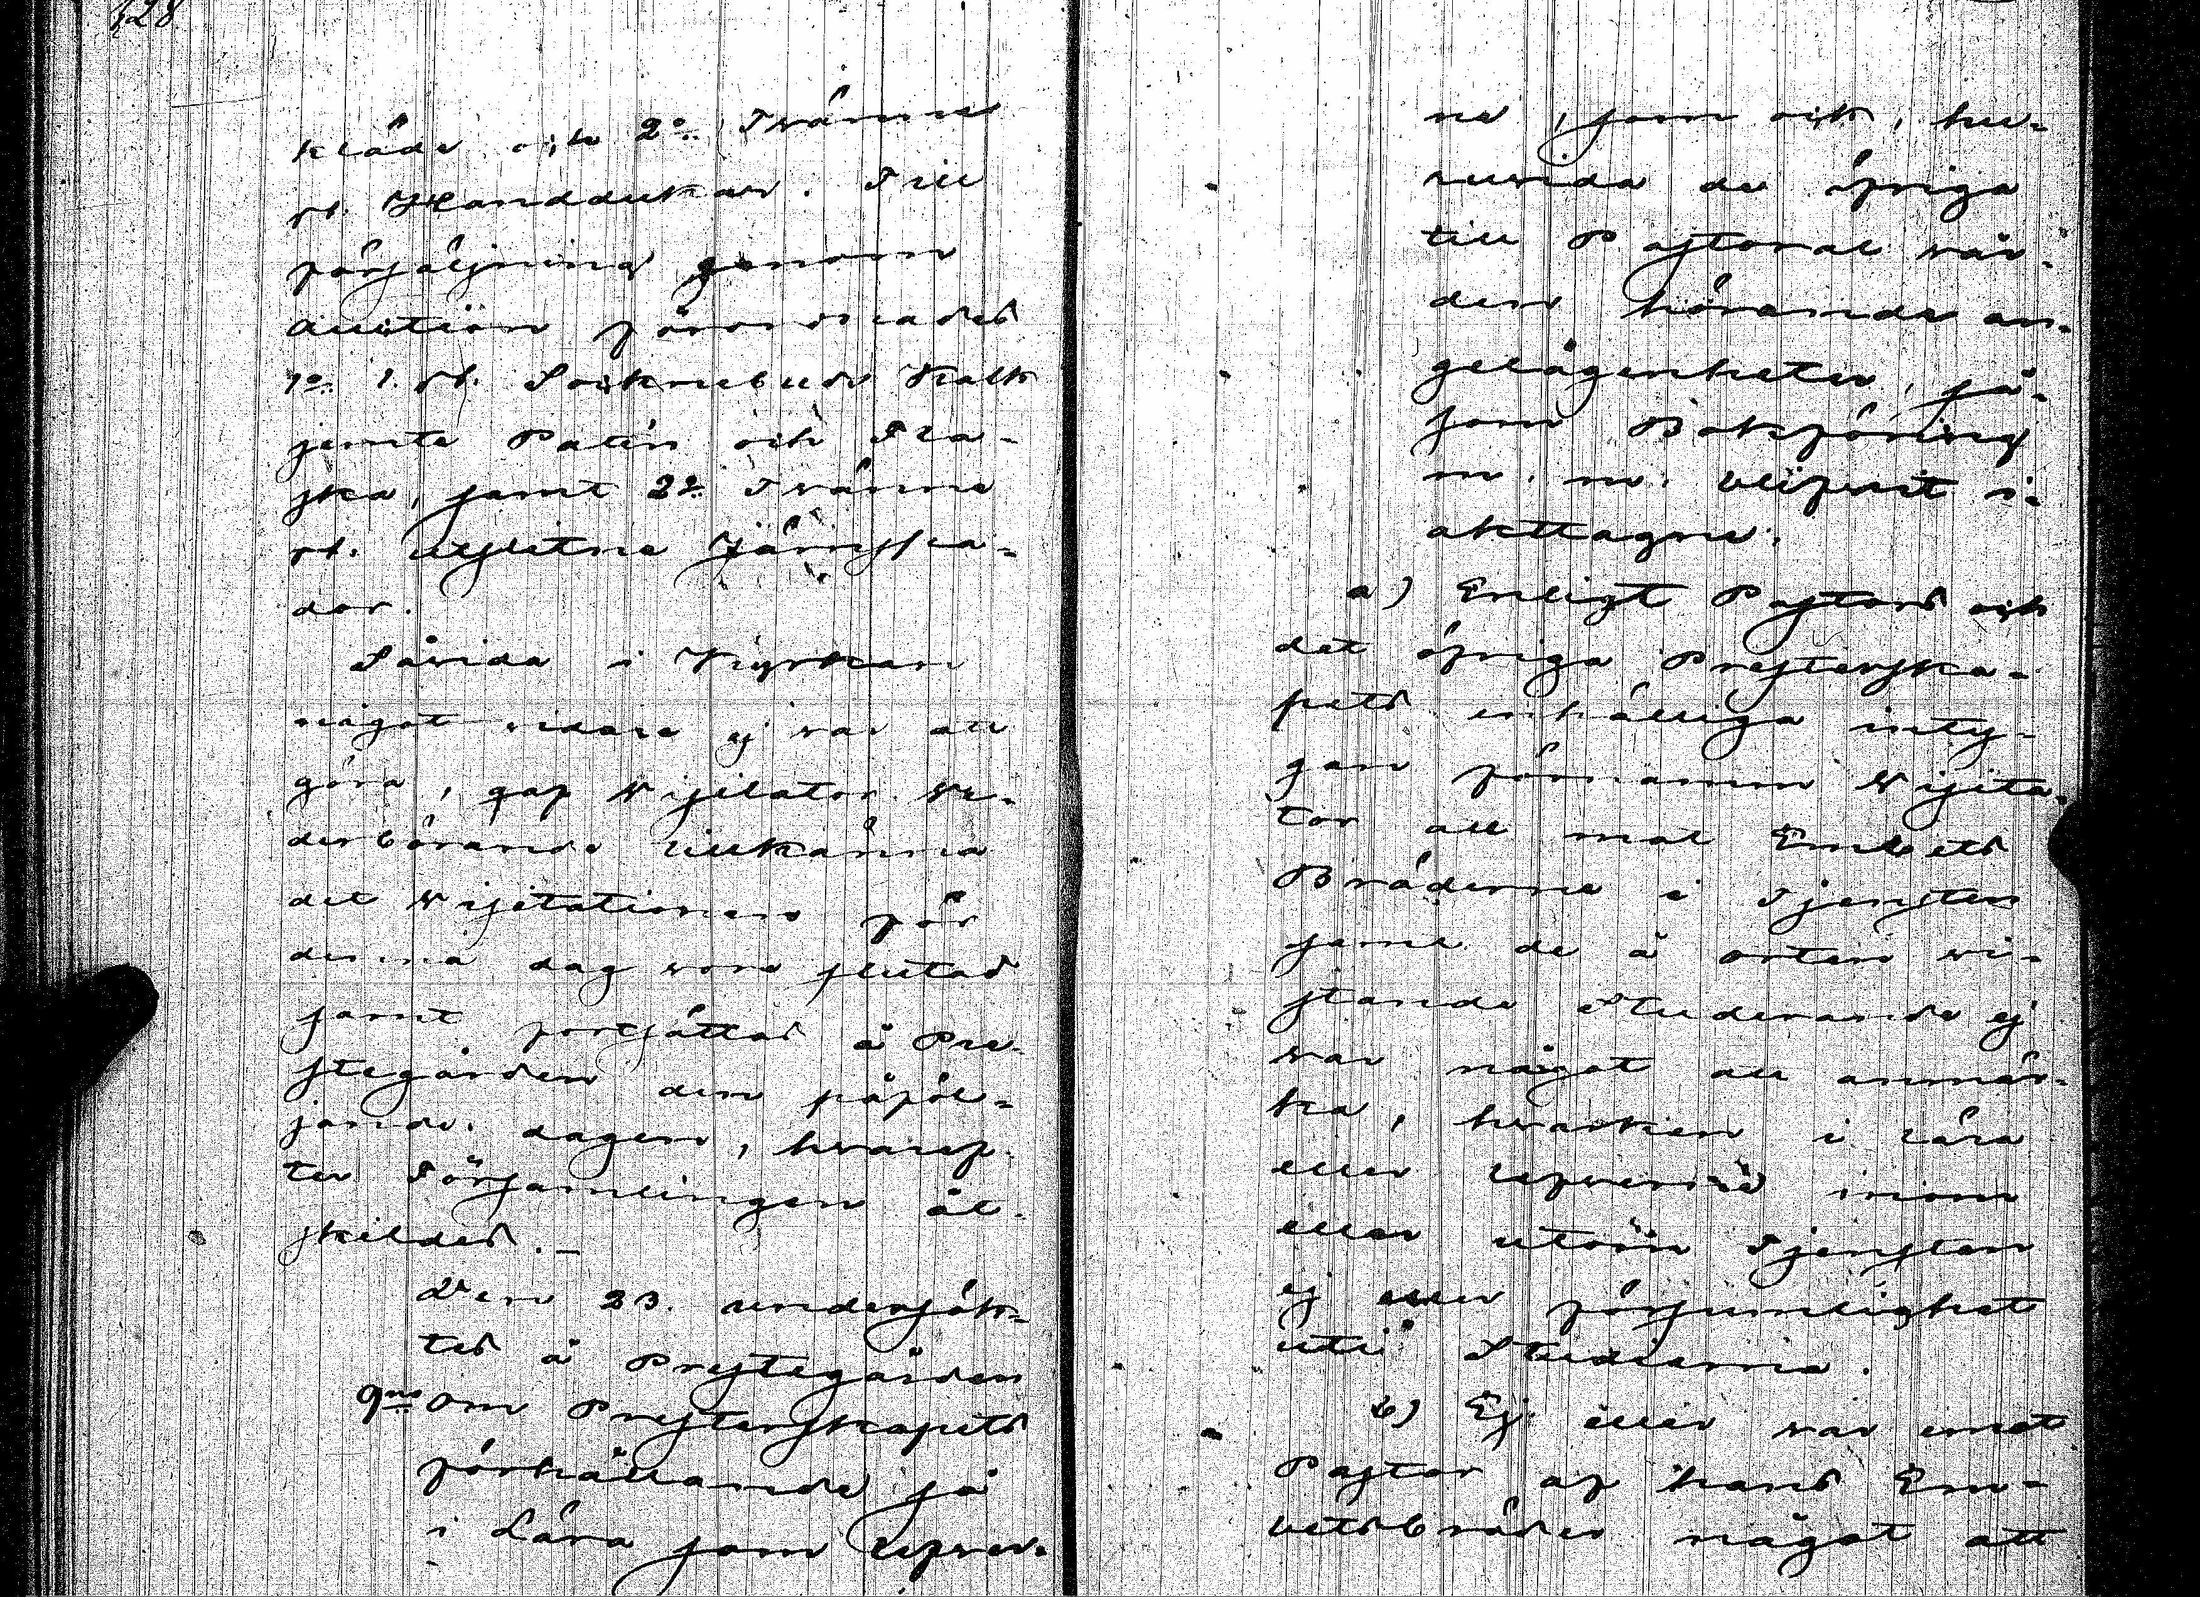 128
kläde och 2:o Tvänne
st. Handdukar. Till
försäljning genom
auction förordnades
1:o 1. st. Sockenbuds Kalk
jemte Patén och Fla-
ska, samt 2:o Tvänne
st. utslitne Järnspa-
dar.
Såvida i Kyrkan
något vidare ej var att
göra, gaf Visitator ve-
derbörande tillkänna
det Visitationen för
denna dag vore slutad
samt fortsättas å Pre-
stegården den påföl-
jande dagen, hvaref-
ter Församlingen åt-
skildes. –
Den 23. undersök-
tes å Prestegården
9:no Om Presterskapets
förhållande så
i Lära som Lefver-
ne, som ock, hu-
ruvida de öfriga
till Pastoral vår-
den hörande an-
gelägenheter, så-
som Bokföring
m. m. blifvit i-
akttagne.
a) Enligt Pastors och
det öfriga Presterska-
pets enhälliga inty-
gan förnamm Visita-
tor att mot Embets
Bröderne i Tjensten
samt de å orten vi-
stande Studerande ej
var något att anmär-
ka, hvarken i lära
eller lefverne inom
eller utom Tjensten
ej eller försumlighet
uti Studierna.
b) Ej eller var emot
Pastor af hans Em-
betsbröder något att